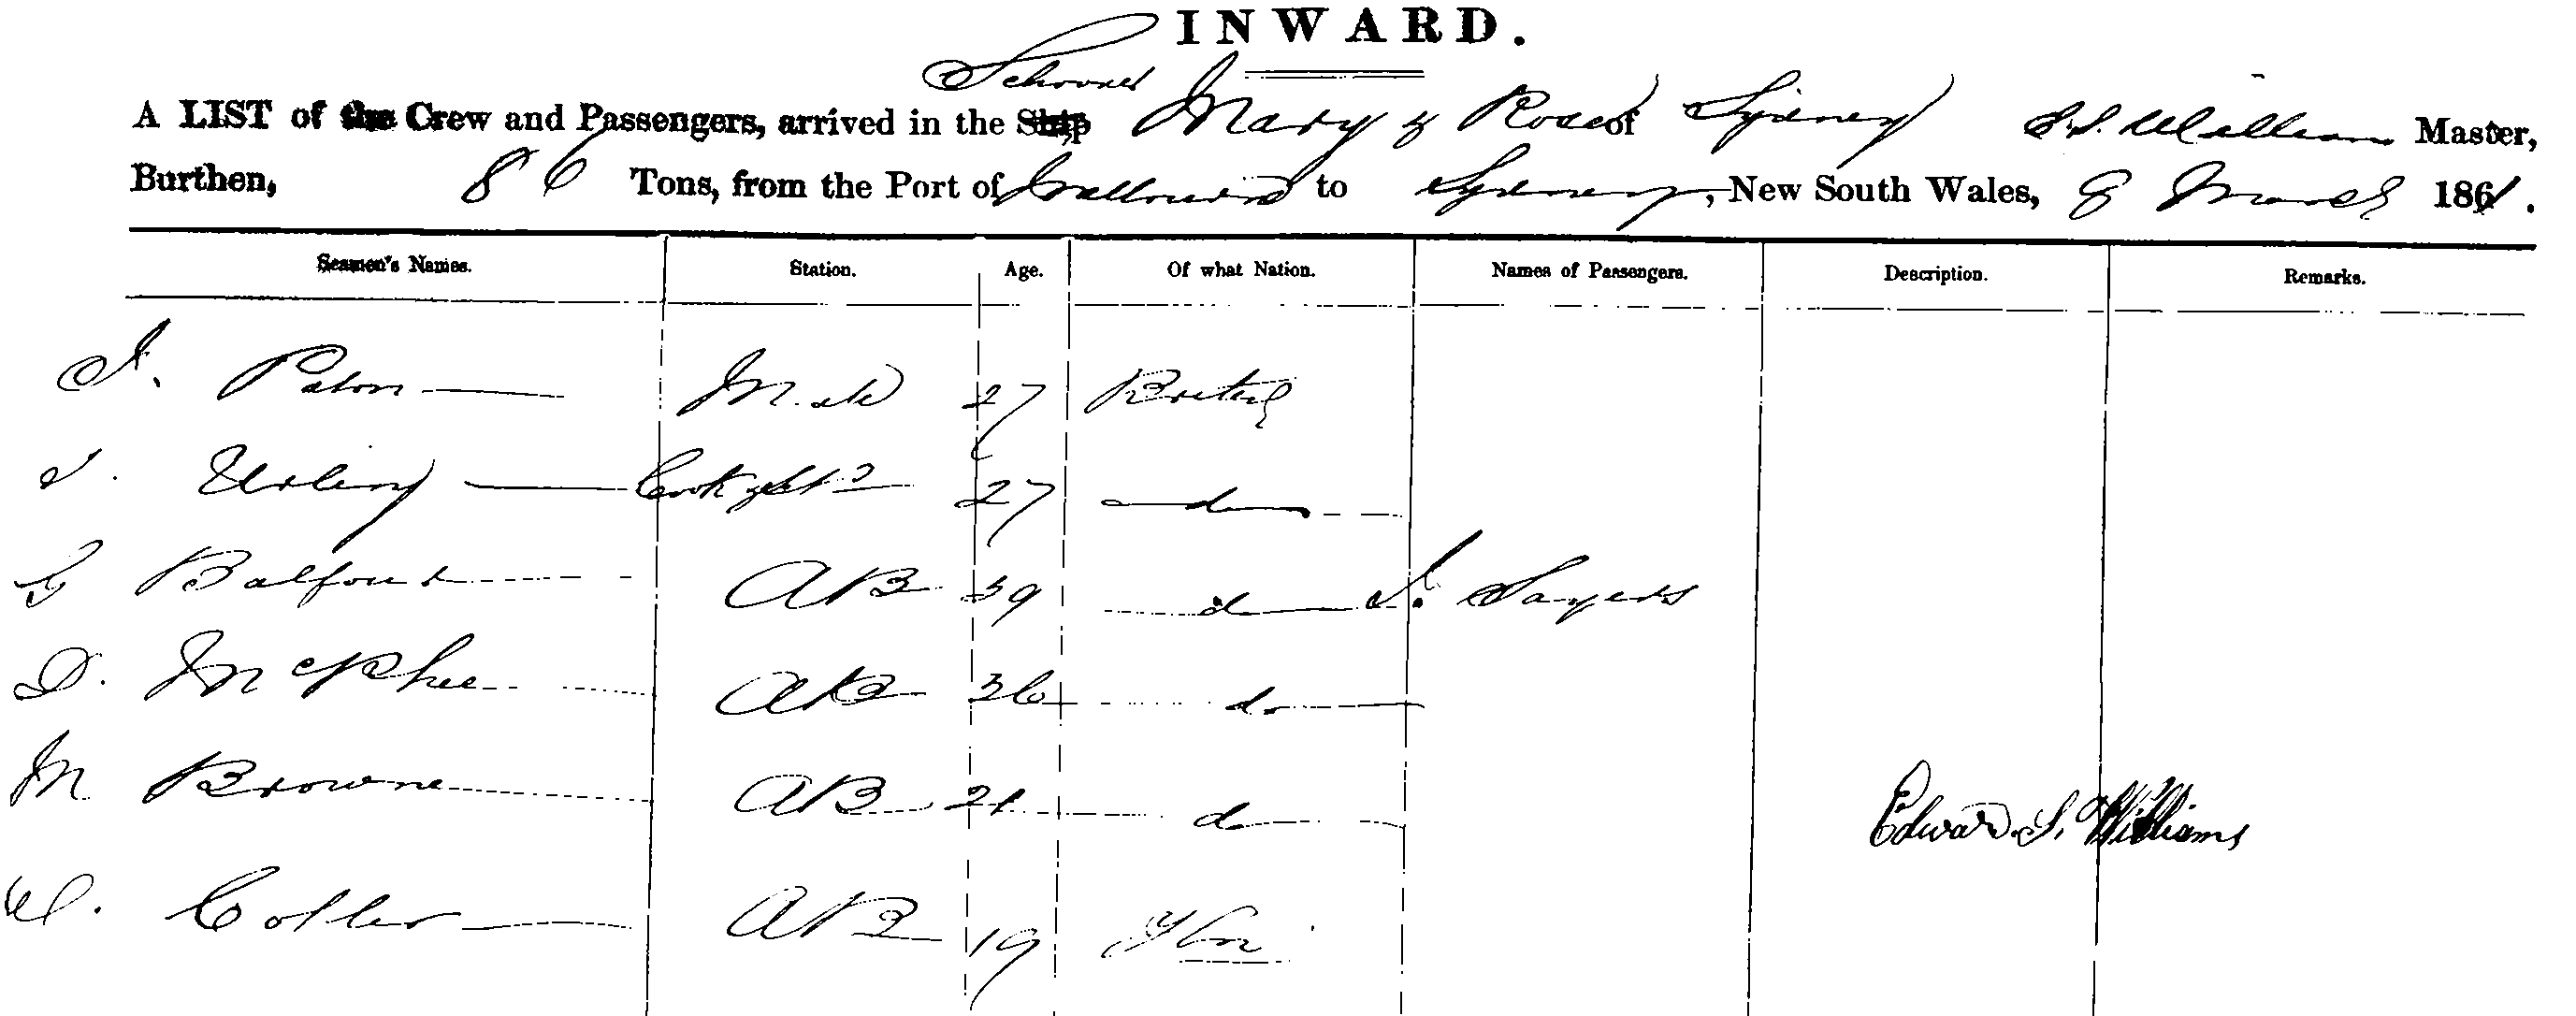 INWARD.
A LIST of the Crew and Passengers, arrived in the Ship Schooner Mary & Rose of Sydney E. S. Williams Master,
Burthen, 86 Tons, from the Port of Melbourne to Sydney, New South Wales, 8 March 1861.
Seamen's Names. Station. Age. Of what Nation. Names of Passengers. Description. Remarks.
J. Paton Mate 27 British
J. Urling Cook & Std 27 do
G Balfour AB 39 do J. Sayers
D. McPhee AB 36 do
M Browne AB 21 do
Edward S. Williams
W. Cotter AB 19